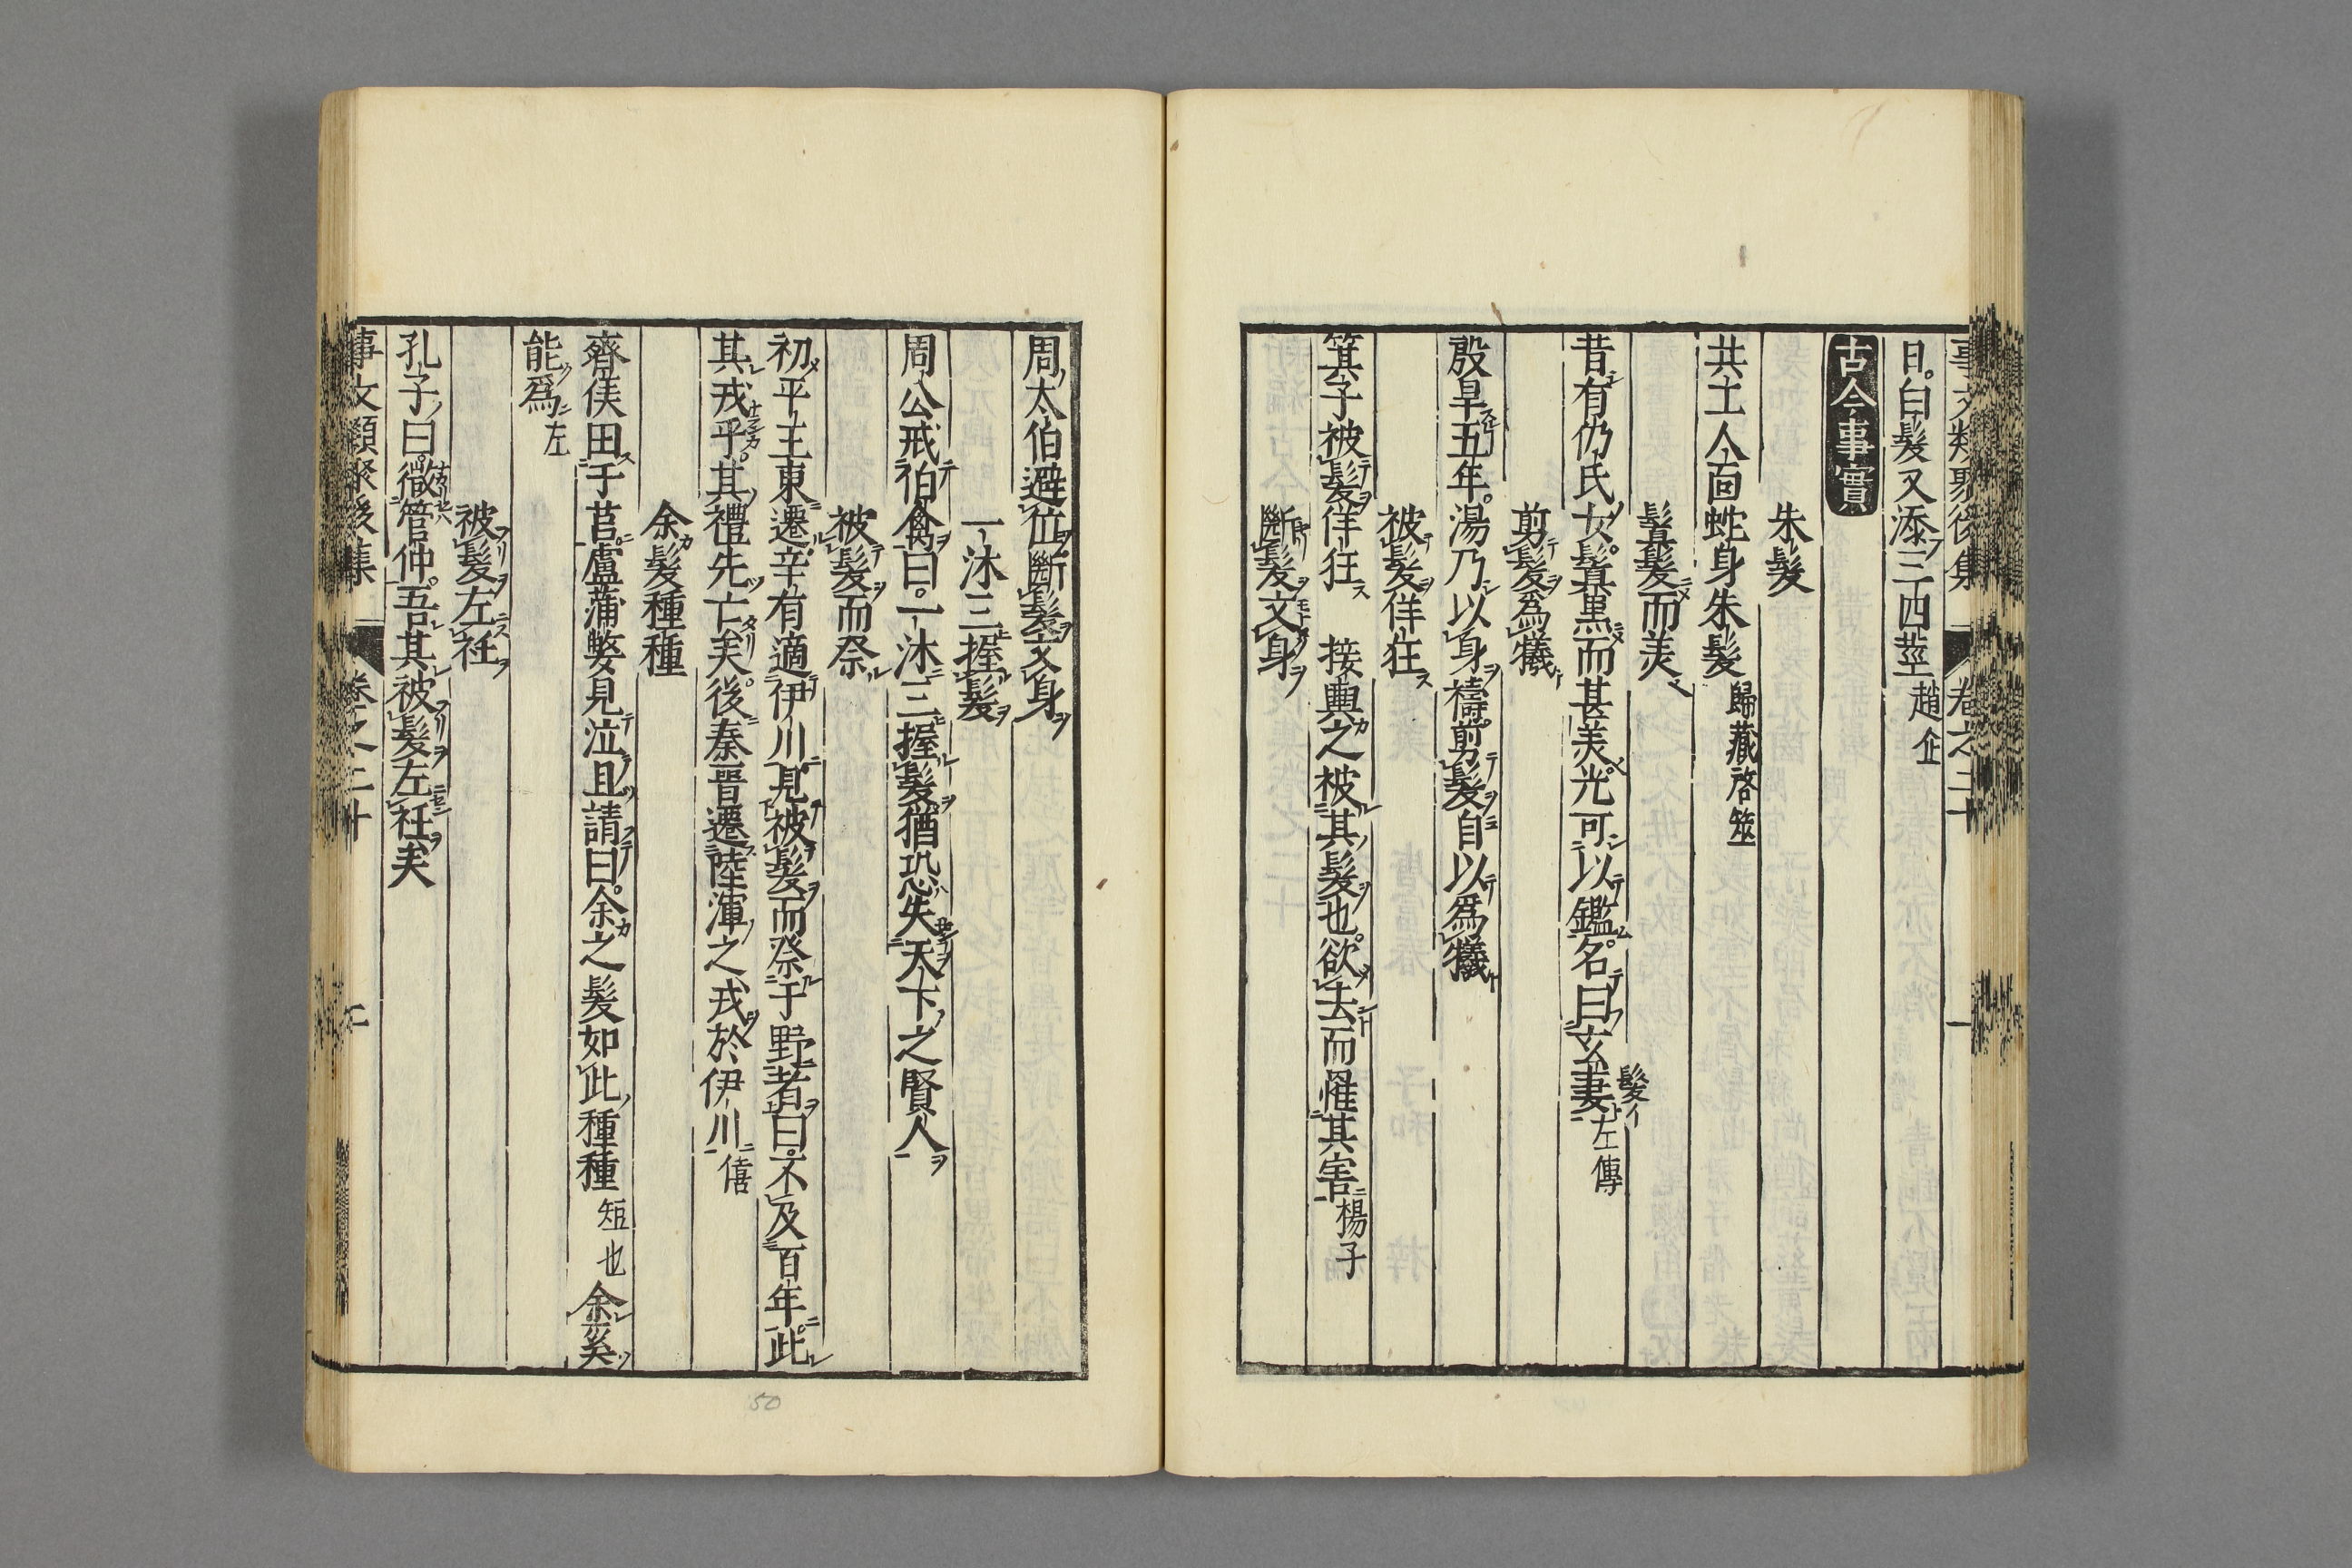 事文類聚後集 卷之二十 一
日白髮又添三四莖 趙企
古今事實
朱髮
共工人面蛇身朱髮 歸藏啓筮
鬒髮而美
昔有仍氏女鬒黑而甚美光可以鑑名曰玄妻 髮イ 左傳
剪髮為犧
殷旱五年湯乃以身禱剪髮自以為犧
被髮佯狂
箕子被髮佯狂 接輿之被其髮也欲去而罹其害 楊子
斷髮文身
周太伯避位斷髮文身
一沐三握髮
周公戒伯禽曰一沐三握髮猶恐失天下之賢人
被髮而祭
初平王東遷辛有適伊川見被髮而祭于野者曰不及百年此
其戎乎其禮先亡矣後秦晉遷陸渾之戎於伊川 僖
余髮種種
齊侯田于莒盧蒲嫳見泣且請曰余之髮如此種種 短也 余奚
能為 左
被髮左衽
孔子曰微管仲吾其被髮左衽矣
事文類聚後集 卷之二十 二
50